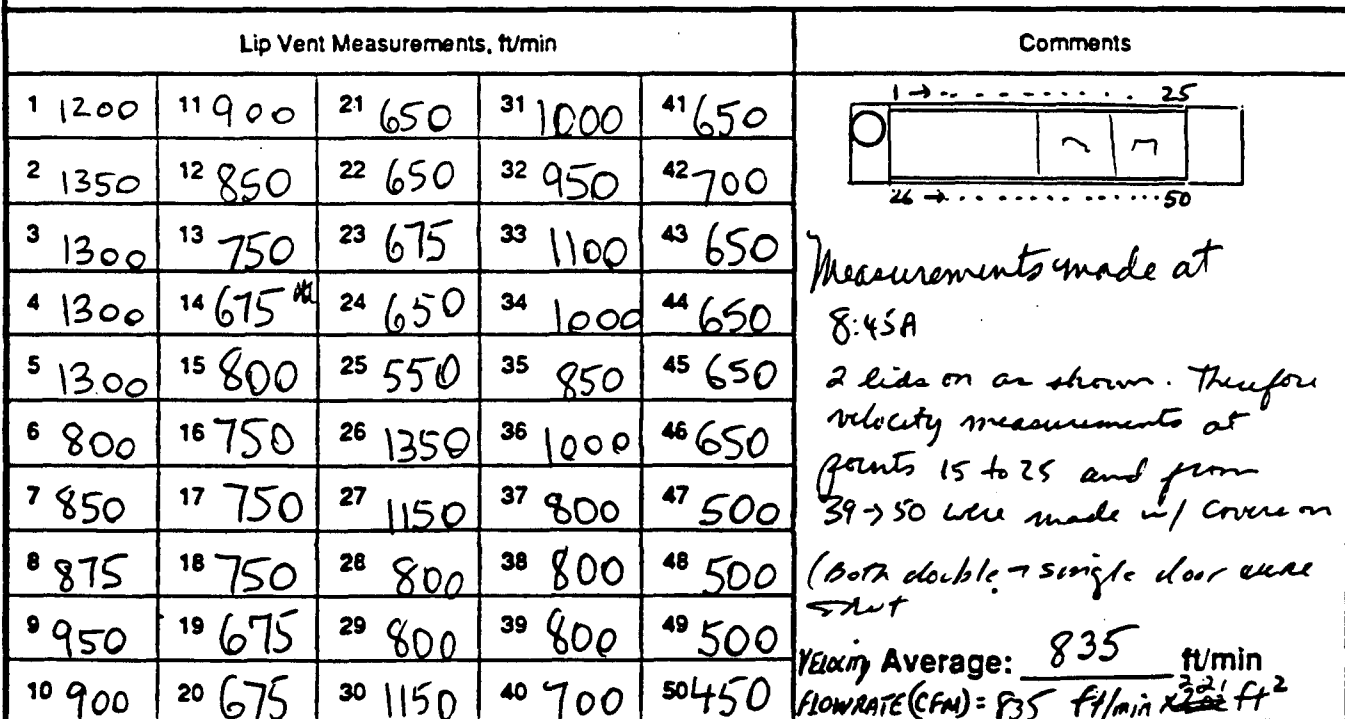 Lip Vent Measurements, ft/min Comments
1 1200 11 900 21 650 31 1000 41 650
2 1350 12 850 22 650 32 950 42 700
3 1300 13 750 23 675 33 1100 43 650
4 1300 14 675 24 650 34 1000 44 650
5 1300 15 800 25 550 35 850 45 650
6 800 16 750 26 1350 36 1000 46 650
7 850 17 750 27 1150 37 800 47 500
8 875 18 750 28 800 38 800 48 500
9 950 19 675 29 800 39 800 49 500
10 900 20 675 30 1150 40 700 50 450
1 → 25
26 → 50
Measurements made at
8:45A
2 lids on as shown. Therefore
velocity measurements at
points 15 to 25 and from
39→50 were made w/ covers on
(Both double single door were
shut
VELOCITY Average: 835 ft/min
FLOWRATE (CFM) = 835 ft/min x 2.21 ft²